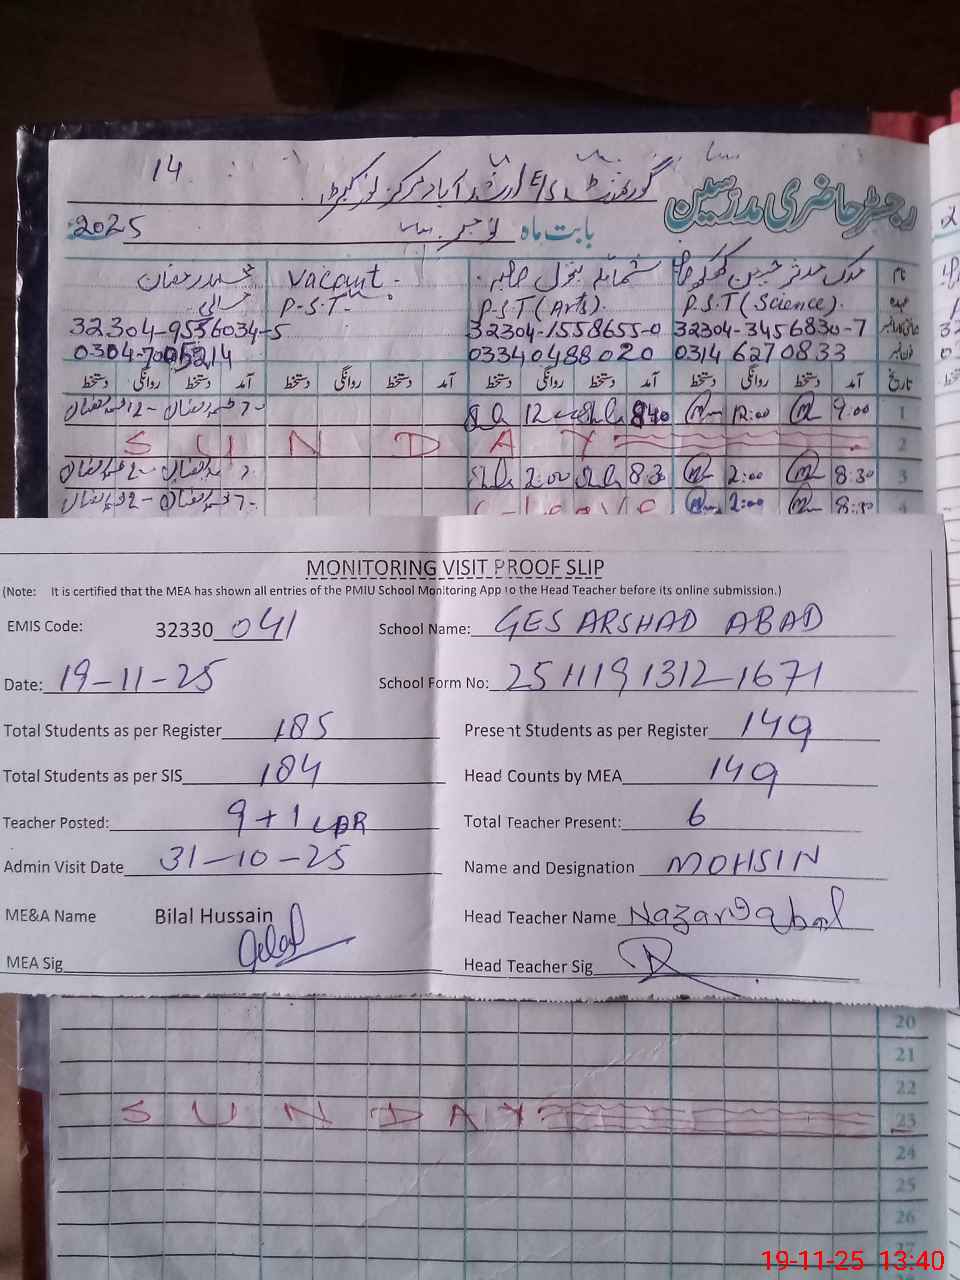 14
رجسٹر حاضری مدرسین
گورنمنٹ E/S ارشد آباد مرکز
بابت ماہ نومبر 2025
نام
Vacant -
محمد رمضان
P.S.T (Science). P.S.T (Arts). P-S-T-
32304-3456830-7 32304-1558655-0 32304-9556034-5
0314 6270833 03340488020
تاریخ آمد دستخط روانگی دستخط آمد دستخط روانگی دستخط آمد دستخط روانگی دستخط آمد دستخط روانگی دستخط
1 9:00 12:00 840 12
2 SUNDAY
3 8:30 2:00 8:30 2:00
4 8:30 2:00 Leave
MONITORING VISIT PROOF SLIP
(Note: It is certified that the MEA has shown all entries of the PMIU School Monitoring App to the Head Teacher before its online submission.)
EMIS Code: 32330 041 School Name: GES ARSHAD ABAD
Date: 19-11-25 School Form No: 2511191312-1671
Total Students as per Register 185 Present Students as per Register 149
Total Students as per SIS 184 Head Counts by MEA 149
Teacher Posted: 9+1 Total Teacher Present: 6
Admin Visit Date 31-10-25 Name and Designation MOHSIN
ME&A Name Bilal Hussain Head Teacher Name Nazar Iqbal
MEA Sig Head Teacher Sig
20
21
22
SUNDAY 23
24
25
26
27
19-11-25 13:40